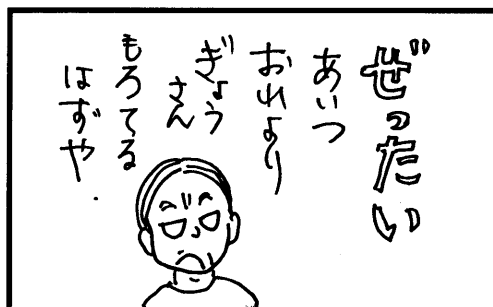 ぜったい
あいつ
おれより
ぎょう
さん
もろてる
はずや.